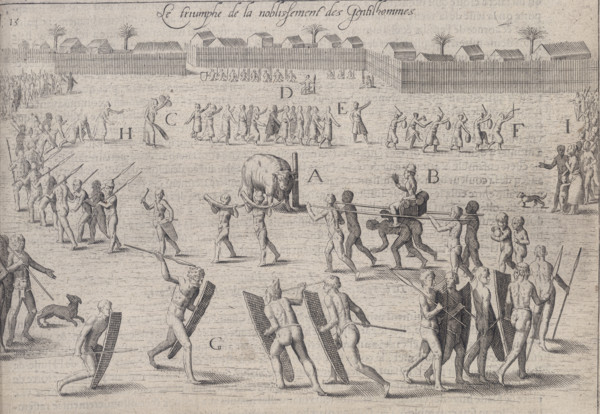 Le triumphe de la noblissement des Gentilhommes.
15
D
E
H
C
F
I
A
B
G